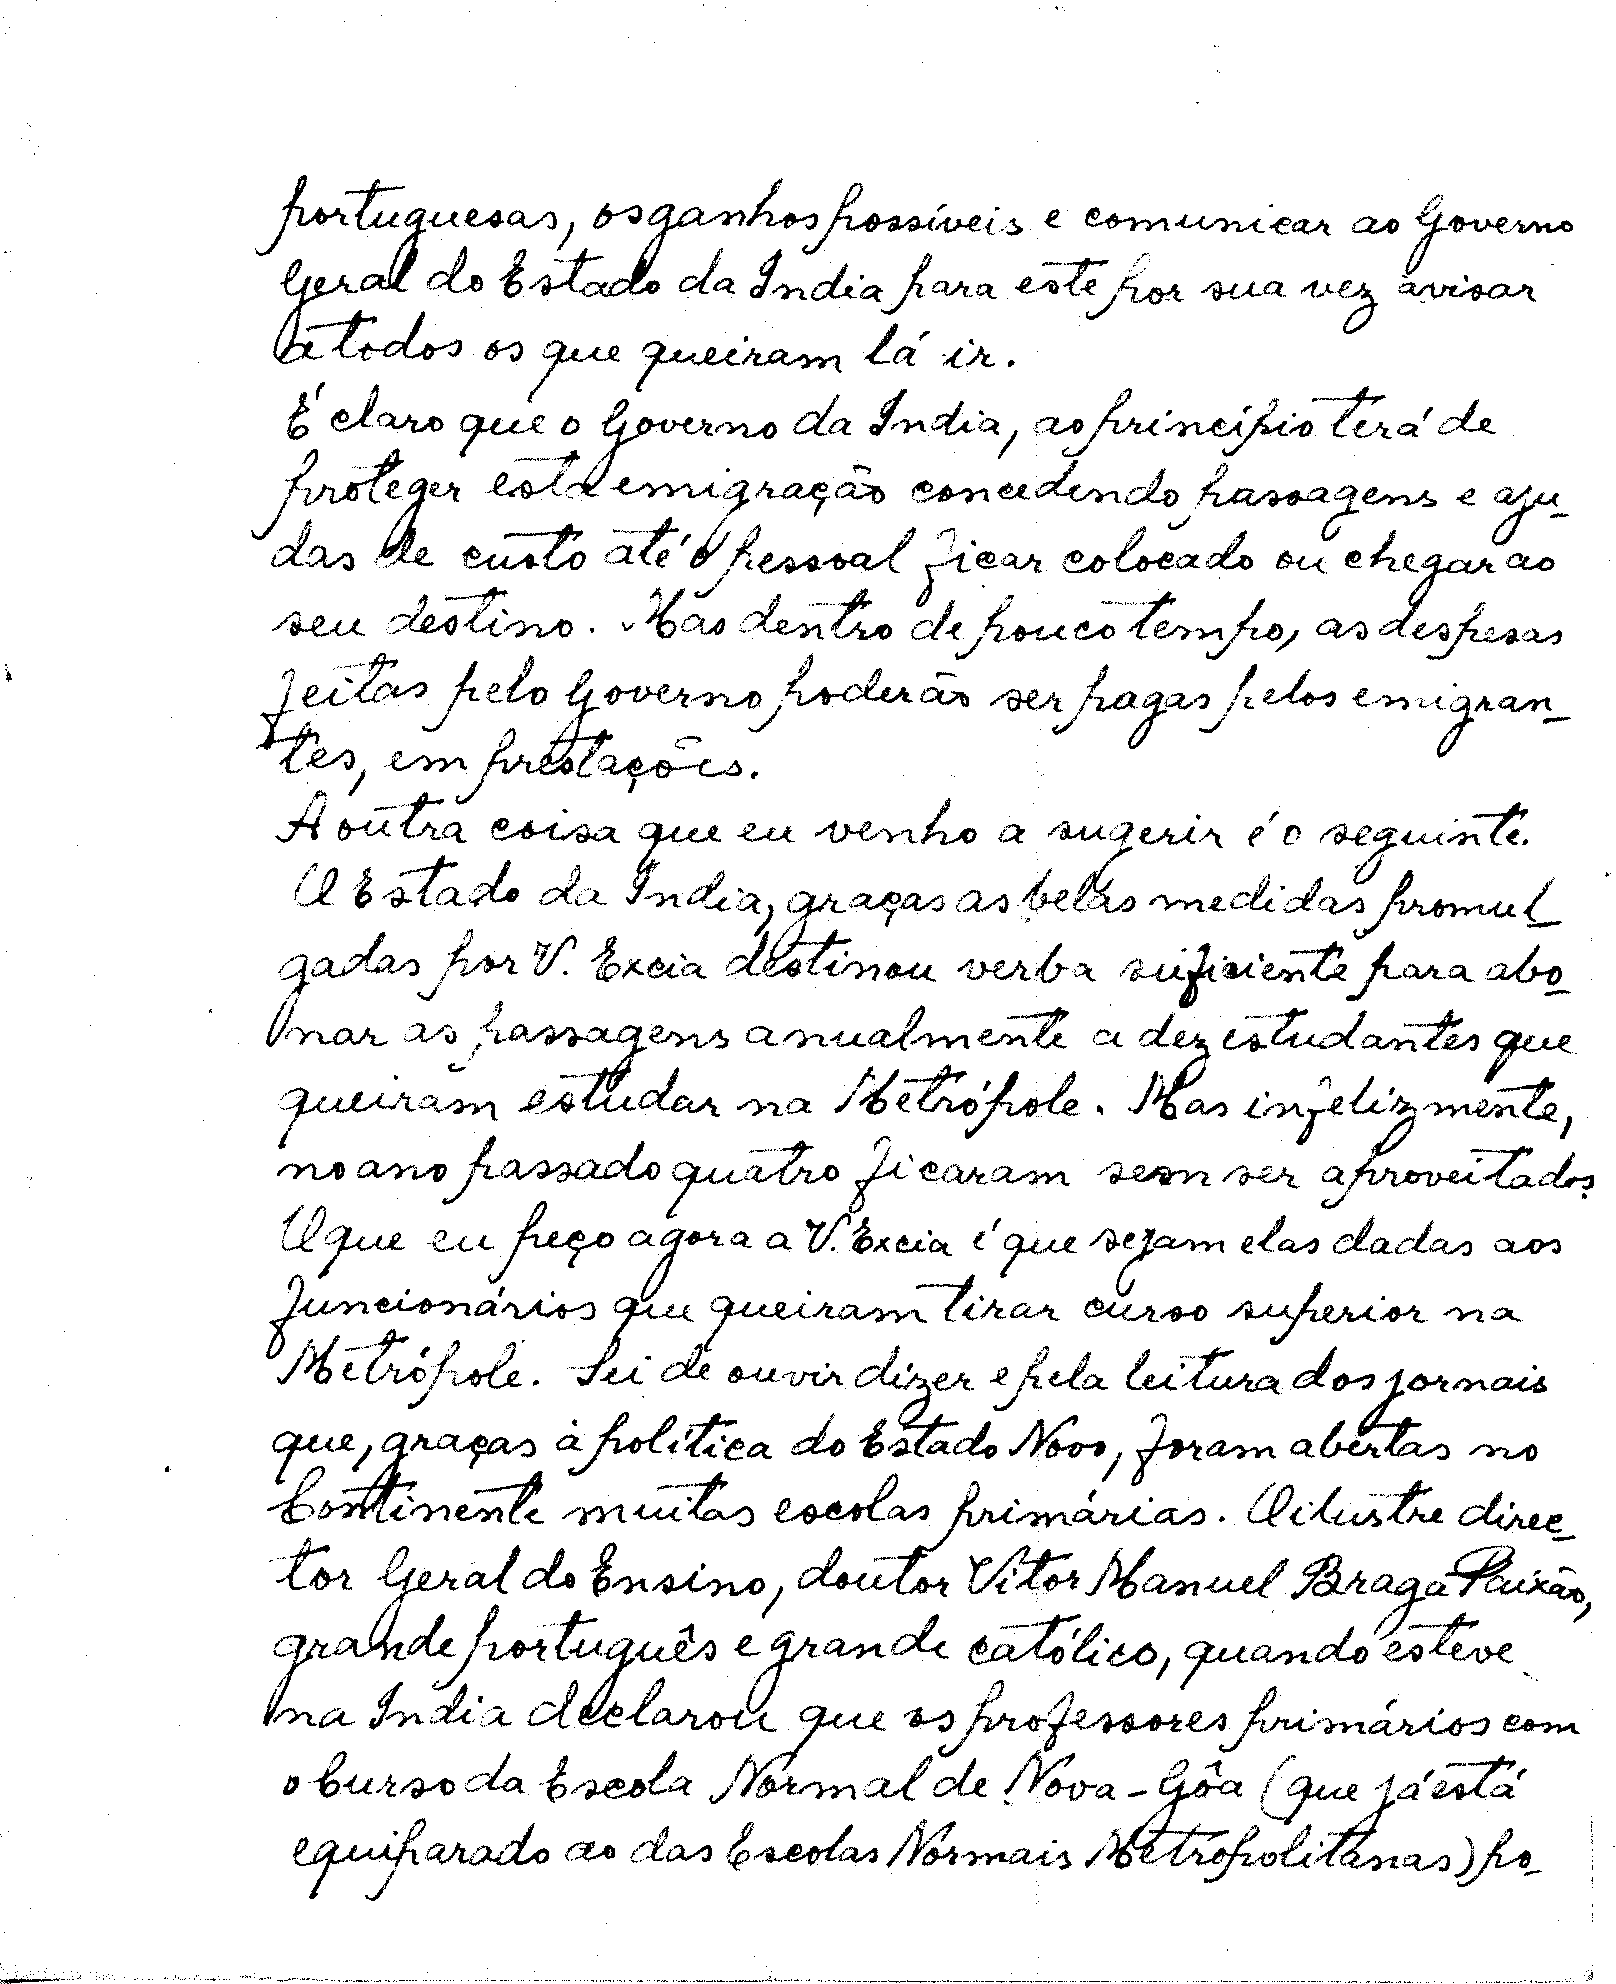 portuguesas, os ganhos possíveis e comunicar ao Governo
Geral do Estado da India para este por sua vez avisar
a todos os que queiram lá ir.
É claro que o Governo da India, ao princípio terá de
proteger esta emigração concedendo passagens e aju-
das de custo até o pessoal ficar colocado ou chegar ao
seu destino. Mas dentro de pouco tempo, as despesas
feitas pelo Governo poderão ser pagas pelos emigran-
tes, em prestações.
A outra coisa que eu venho a sugerir é o seguinte.
O Estado da India, graças as belas medidas promul-
gadas por V. Excia destinou verba suficiente para abo-
nar as passagens anualmente a dez estudantes que
queiram estudar na Metrópole. Mas infelizmente,
no ano passado quatro ficaram sem ser aproveitados.
O que eu peço agora a V. Excia é que sejam elas dadas aos
funcionários que queiram tirar curso superior na
Metrópole. Sei de ouvir dizer e pela leitura dos jornais
que, graças à política do Estado Novo, foram abertas no
Continente muitas escolas primárias. O ilustre direc-
tor Geral do Ensino, doutor Vitor Manuel Braga Paixão,
grande português e grande católico, quando esteve
na India declarou que os professores primários com
o Curso da Escola Normal de Nova-Gôa (que já está
equiparado ao das Escolas Normais Metropolitanas) po-